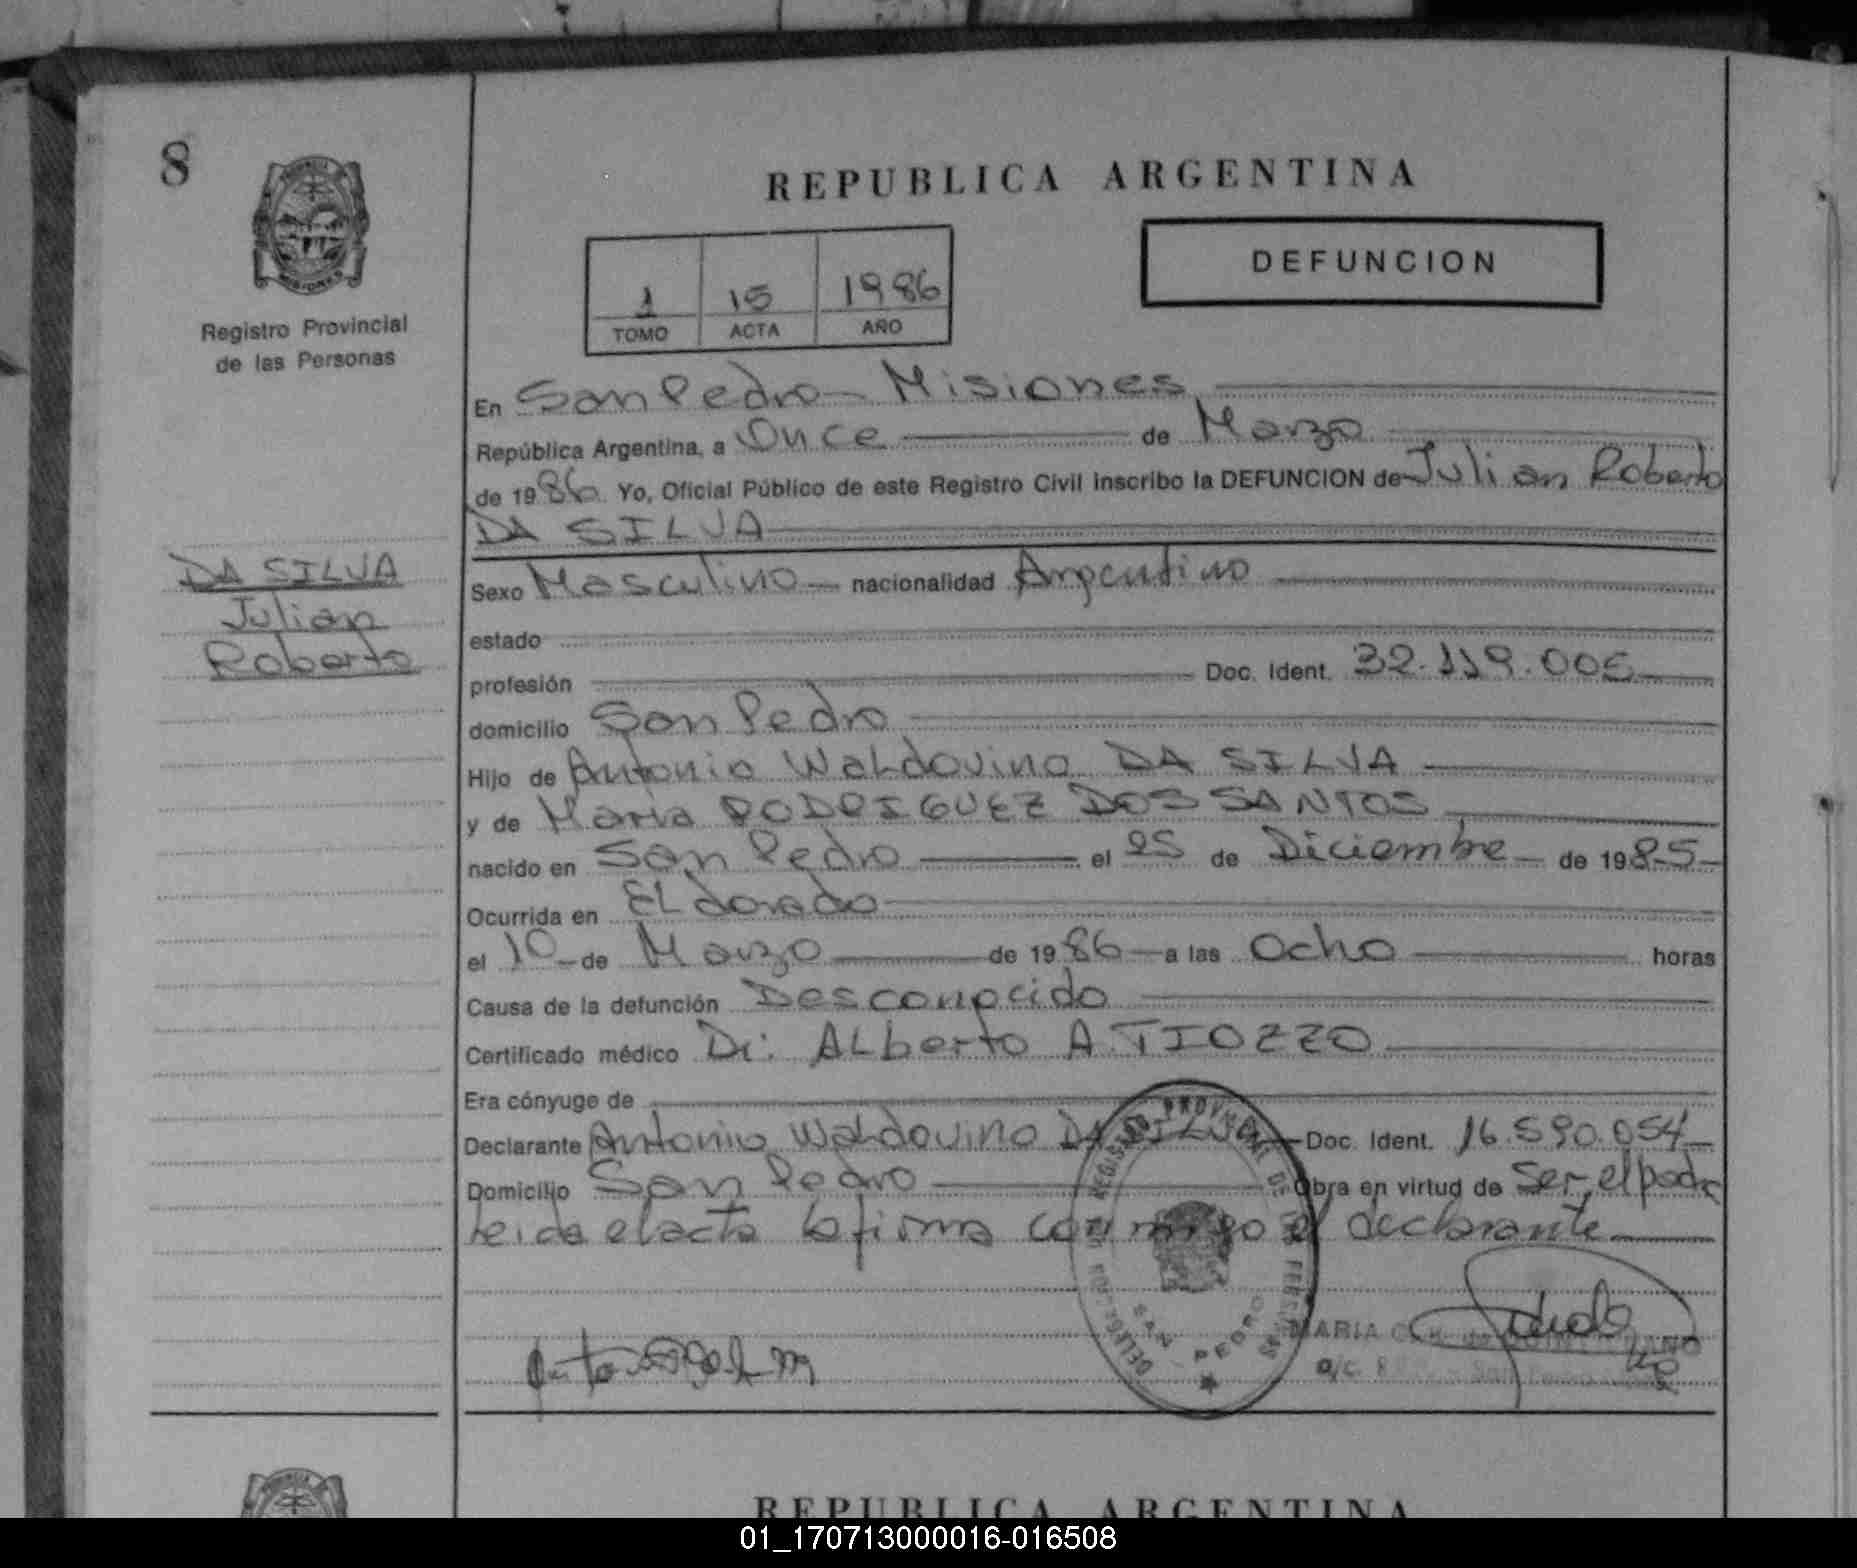 8
REPUBLICA ARGENTINA
DEFUNCION
1 15 1986
TOMO ACTA AÑO
Registro Provincial
de las Personas
En San Pedro - Misiones
República Argentina, a Once de Marzo
de 1986 Yo, Oficial Público de este Registro Civil inscribo la DEFUNCION de Julian Roberto
DA SILVA
DA SILVA
Julian
Roberto
Sexo Masculino nacionalidad Argentino
estado
profesión Doc. Ident. 32.119.005
domicilio San Pedro
Hijo de Antonio Waldovino DA SILVA
y de Maria RODRIGUEZ DOS SANTOS
nacido en San Pedro el 25 de Diciembre de 1985
Ocurrida en ELdorado
el 10 de Marzo de 1986 a las Ocho horas
Causa de la defunción Desconocido
Certificado médico Dr. ALberto A. TIOZZO
Era cónyuge de
Declarante Antonio Waldovino DA SILVA Doc. Ident. 16.590.054
Domicilio San Pedro Obra en virtud de ser el padre
Leida el acta la firma conmigo el declarante
SAN PEDRO
MARIA
a/c.
REPUBLICA ARGENTINA
01_170713000016-016508